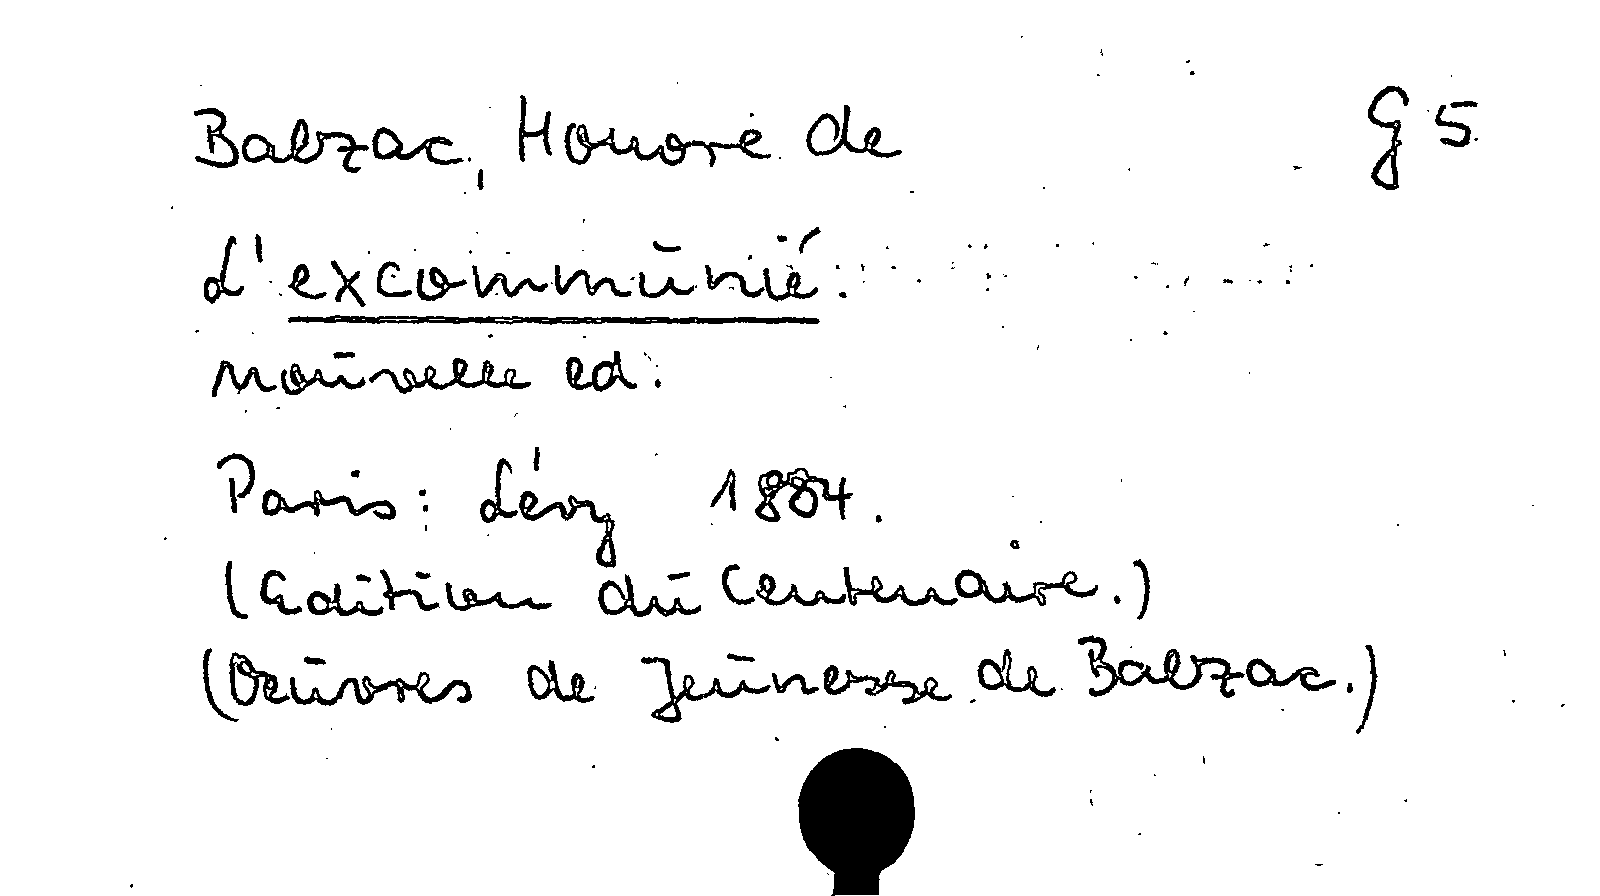 Balzac, Honore de G 5
L'excommunié.
nouvelle ed.
Paris: Lévy 1884.
(Edition du Centenaire.)
(Oeuvres de Jeunesse de Balzac.)